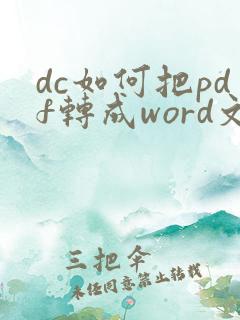 dc如何把pd
f轉成word文
三把傘
未經同意禁止轉載